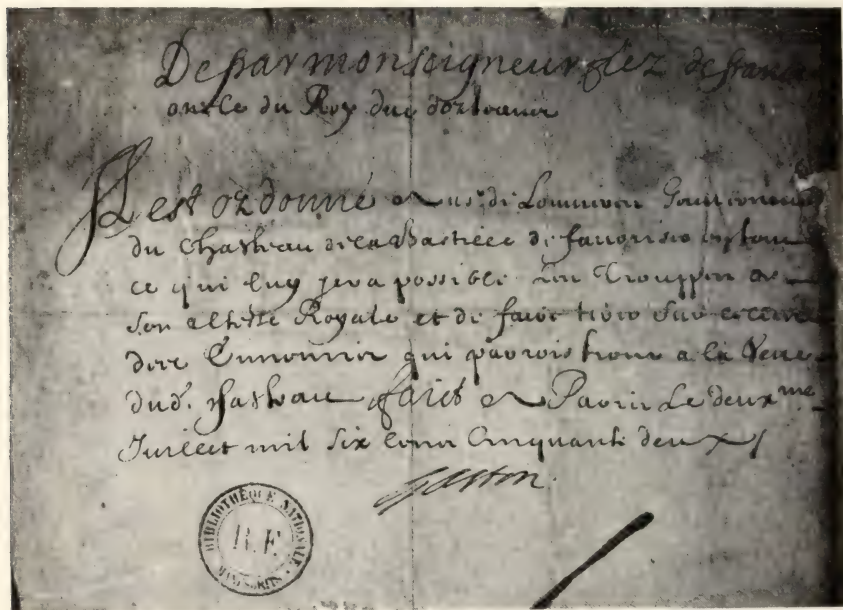 De par monseigneur filz de france
oncle du Roy duc dorleans
Il est ordonné a Mr de Louuiere Gouuerneur
du Chasteau de la Bastille de fauoriser en tout
ce qui luy sera possible les Trouppes de
son altesse Royale et de faire tirer sur celles
des Ennemies qui paroistront a la Veue
dud. Chasteau faict a Paris Le deuxme
Juillet mil six cens Cinquante deux
Gaston
BIBLIOTHÈQUE NATIONALE
R.F.
MANUSCRITS